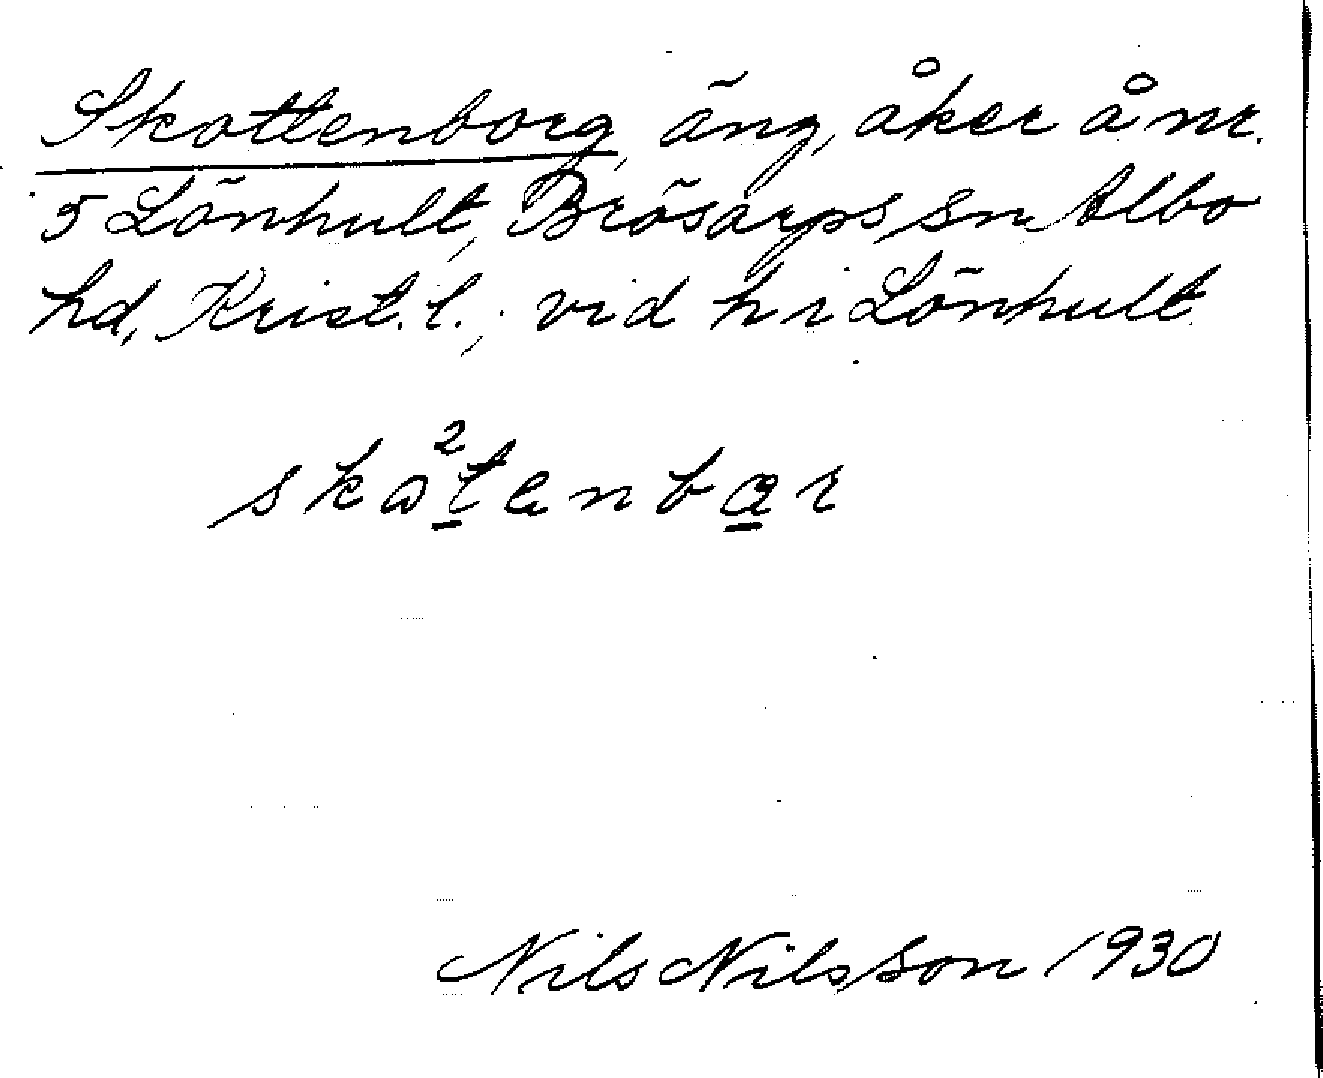 Skottenborg, äng, åker å nr.
5 Lönhult, Brösarps sn Albo
hd, Krist. l., vid h i Lönhult
2
Nils Nilsson 1930